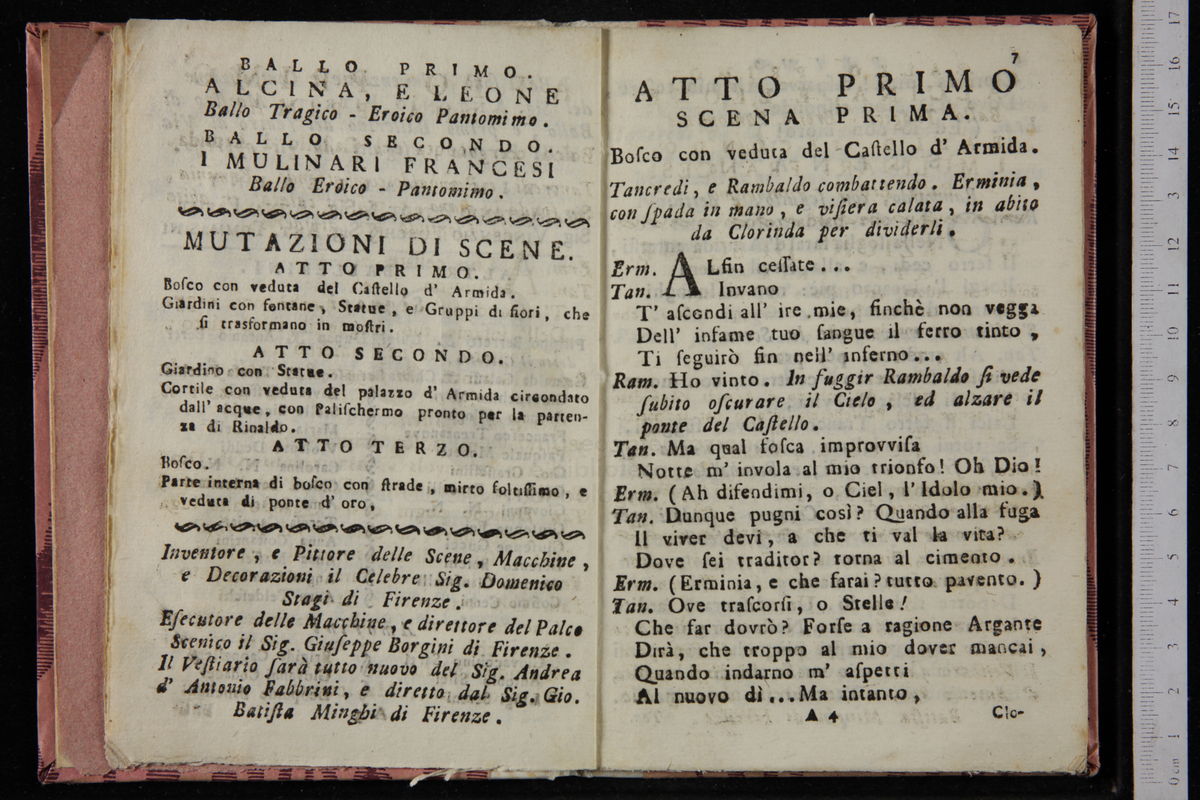 BALLO PRIMO.
ALCINA, E LEONE
Ballo Tragico - Eroico Pantomimo.
BALLO SECONDO.
I MULINARI FRANCESI
Ballo Eroico - Pantomimo.
MUTAZIONI DI SCENE.
ATTO PRIMO.
Boſco con veduta del Caſtello d' Armida.
Giardini con fontane, Statue, e Gruppi di fiori, che
ſi trasformano in moſtri.
ATTO SECONDO.
Giardino con Statue.
Cortile con veduta del palazzo d' Armida circondato
dall' acque, con Paliſchermo pronto per la parten-
za di Rinaldo.
ATTO TERZO.
Boſco.
Parte interna di boſco con ſtrade, mirto foltiſſimo, e
veduta di ponte d' oro,
Inventore, e Pittore delle Scene, Macchine,
e Decorazioni il Celebre Sig. Domenico
Stagi di Firenze.
Eſecutore delle Macchine, e direttore del Palco
Scenico il Sig. Giuſeppe Borgini di Firenze.
Il Veſtiario ſarà tutto nuovo del Sig. Andrea
d' Antonio Fabbrini, e diretto dal Sig. Gio.
Batiſta Minghi di Firenze.
7
ATTO PRIMO
SCENA PRIMA.
Boſco con veduta del Caſtello d' Armida.
Tancredi, e Rambaldo combattendo. Erminia,
con ſpada in mano, e viſiera calata, in abito
da Clorinda per dividerli.
Erm. ALfin ceſſate...
Tan. Invano
T' aſcondi all' ire mie, finchè non vegga
Dell' infame tuo ſangue il ferro tinto,
Ti ſeguirò fin nell' inferno...
Ram. Ho vinto. In fuggir Rambaldo ſi vede
ſubito oſcurare il Cielo, ed alzare il
ponte del Caſtello.
Tan. Ma qual foſca improvviſa
Notte m' invola al mio trionfo! Oh Dio!
Erm. (Ah difendimi, o Ciel, l' Idolo mio.)
Tan. Dunque pugni così? Quando alla fuga
Il viver devi, a che ti val la vita?
Dove ſei traditor? torna al cimento.
Erm. (Erminia, e che farai? tutto pavento.)
Tan. Ove traſcorſi, o Stelle!
Che far dovrò? Forſe a ragione Argante
Dirà, che troppo al mio dover mancai,
Quando indarno m' aſpetti
Al nuovo dì... Ma intanto,
A 4
Clo-
17
16
15
14
3
12
11
10
9
8
7
6
5
4
3
2
1
0 cm